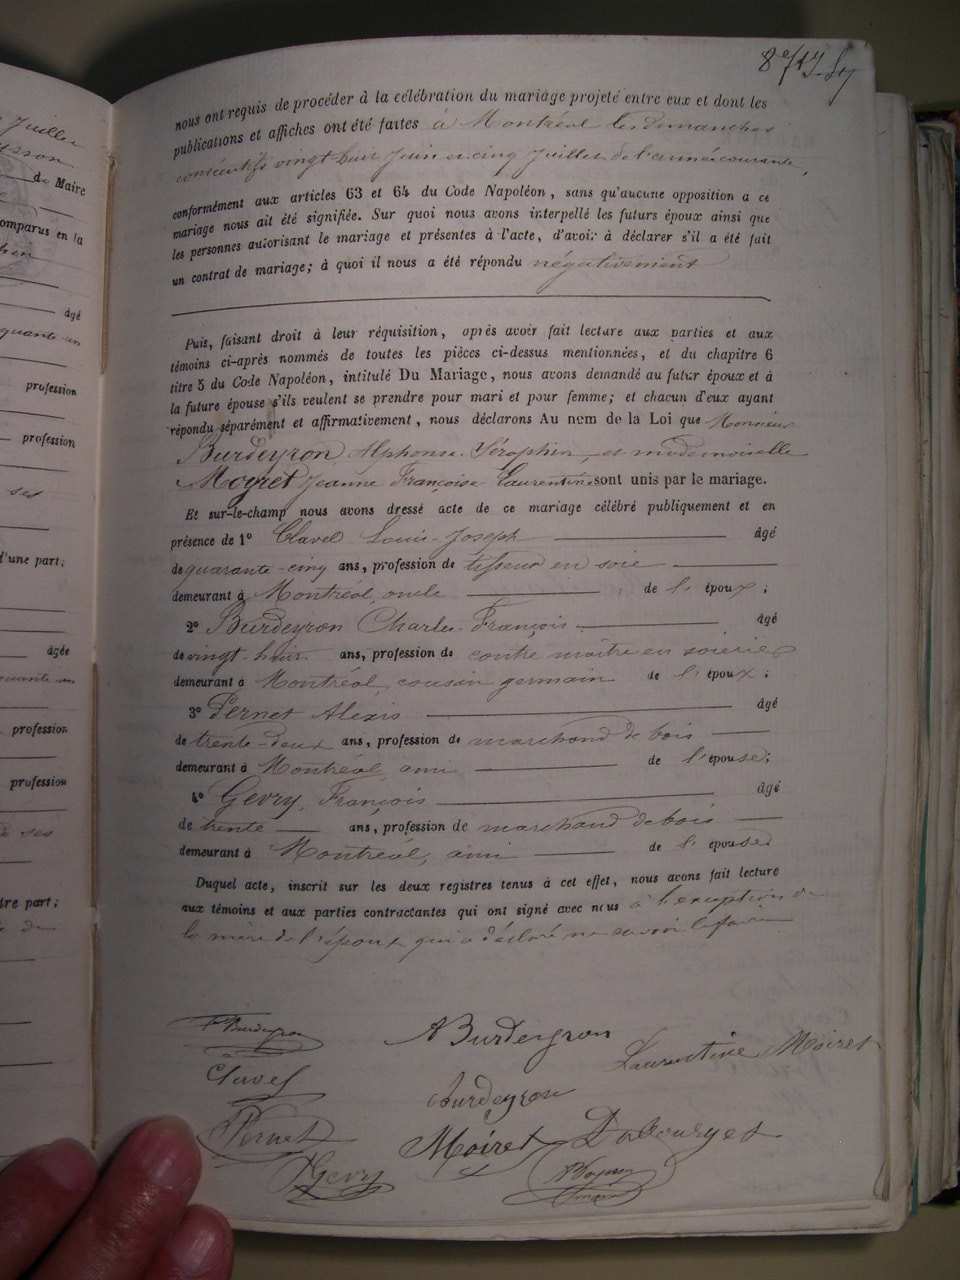 Juillet
de Maire
comparus en la
âgé
quante un
profession
profession
ses
d'une part;
âgée
quante un
profession
profession
ses
tre part;
de
8e
nous ont requis de procéder à la célébration du mariage projeté entre eux et dont les
publications et affiches ont été faites à Montréal les dimanches
consécutifs vingt huit Juin et cinq Juillet de l'année courante,
conformément aux articles 63 et 64 du Code Napoléon, sans qu'aucune opposition a ce
mariage nous ait été signifiée. Sur quoi nous avons interpellé les futurs époux ainsi que
les personnes autorisant le mariage et présentes à l'acte, d'avoir à déclarer s'il a été fait
un contrat de mariage; à quoi il nous a été répondu négativement
Puis, faisant droit à leur réquisition, après avoir fait lecture aux parties et aux
témoins ci-après nommés de toutes les pièces ci-dessus mentionnées, et du chapitre 6
titre 5 du Code Napoléon, intitulé Du Mariage, nous avons demandé au futur époux et à
la future épouse s'ils veulent se prendre pour mari et pour femme; et chacun d'eux ayant
répondu séparément et affirmativement, nous déclarons Au nom de la Loi que Monsieur
Burdeyron, Alphonse Séraphin et mademoiselle
Moyret Jeanne Françoise Laurentine sont unis par le mariage.
Et sur-le-champ nous avons dressé acte de ce mariage célébré publiquement et en
présence de 1° Clavel Louis-Joseph âgé
de quarante-cinq ans, profession de tisseur en soie
demeurant à Montréal, oncle de l'époux;
2° Burdeyron Charles François âgé
de vingt-huit ans, profession de contre maître en soieries
demeurant à Montréal, cousin germain de l'époux;
3° Pernet Alexis âgé
de trente-deux ans, profession de marchand de bois
demeurant à Montréal, ami de l'épouse;
4° Gevry, François âgé
de trente ans, profession de marchand de bois
demeurant à Montréal, ami de l'épouse
Duquel acte, inscrit sur les deux registres tenus à cet effet, nous avons fait lecture
aux témoins et aux parties contractantes qui ont signé avec nous à l'exception de
la mère de l'époux qui a déclaré ne savoir le faire
Burdeyron
A Burdeyron
Laurentine Moiret
Clavel
Burdeyron
Pernet
Moiret
Gevry